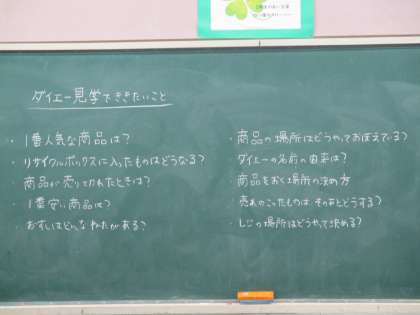 ダイエー見学でききたいこと
・1番人気な商品は?
・リサイクルボックスに入ったものはどうなる?
・商品が売りきれたときは?
・1番安い商品は?
・おすしはどんなねたがある?
・商品の場所はどうやっておぼえている?
・ダイエーの名前の由来は?
・商品をおく場所の決め方
・売れのこったものは そのあとどうする?
・レジの場所はどうやって決める?